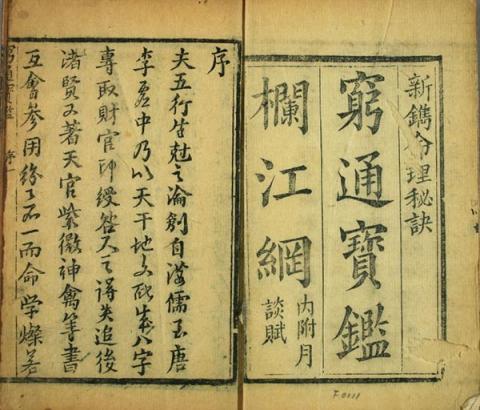 新鐫命理秘訣
窮通寶鑑
欄江網
內附月
談賦
序
夫五行生尅之論創自漢儒至唐
李虛中乃以天干地支配成八字
專取財官印綬人之得失迨後
諸賢又著天官紫微神禽等書
互會參用紛紛不一而命学燦若
窮通寶鑑 序 一